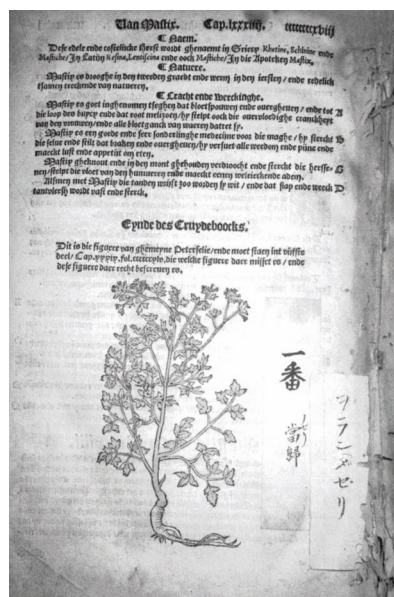 Van Mastix. Cap.lxxxiiij.
☾ Naem.
Dese edele ende costelicke Herst wordt ghenaemt in Griecx Rhetine, Schinine ende
Mastiche/In Latijn Resina, Lentiscina ende oock Mastiche/In die Apoteken Mastix.
☾ Natuere.
Mastix es drooghe in den tweeden graedt ende werm in den iersten/ ende redelick
tsamen treckende van natueren.
☾ Cracht ende Werckinghe.
Mastix es goet inghenomen tseghen dat bloetspouwen ende overgheuen/ ende tot A
die loop des buycx ende dat root melizoen/ hy stelpt oock die overvloedighe cranckheyt
van den vrouwen/ende alle bloetganck van waeren datret sy.
Mastix es een goede ende seer sonderlinghe medecine voor die maghe/ hy sterckt B
die selue ende stilt dat braken ende overgheuen/ hy versuet alle weedom ende pijne ende
maeckt lust ende appetijt om eten.
Mastix gheknout ende in den mont ghehouden verdroocht ende sterckt die herssenen/ stelpt die vloet van den humueren ende maeckt eenen welrieckende adem.
Alsmen met Mastix die tanden wrijft soo worden sy wit/ ende dat slap ende weeck D
tantvleesch wordt vast ende sterck.
Eynde des Cruydeboocks.
Dit is die figuere van ghemeyne Peterselie/ende moet staen int vijfste
deel/ Cap. die welcke figuere daer misset es/ ende
dese figuere daer recht bescreuen es.
一番
當歸
ヲランダゼリ